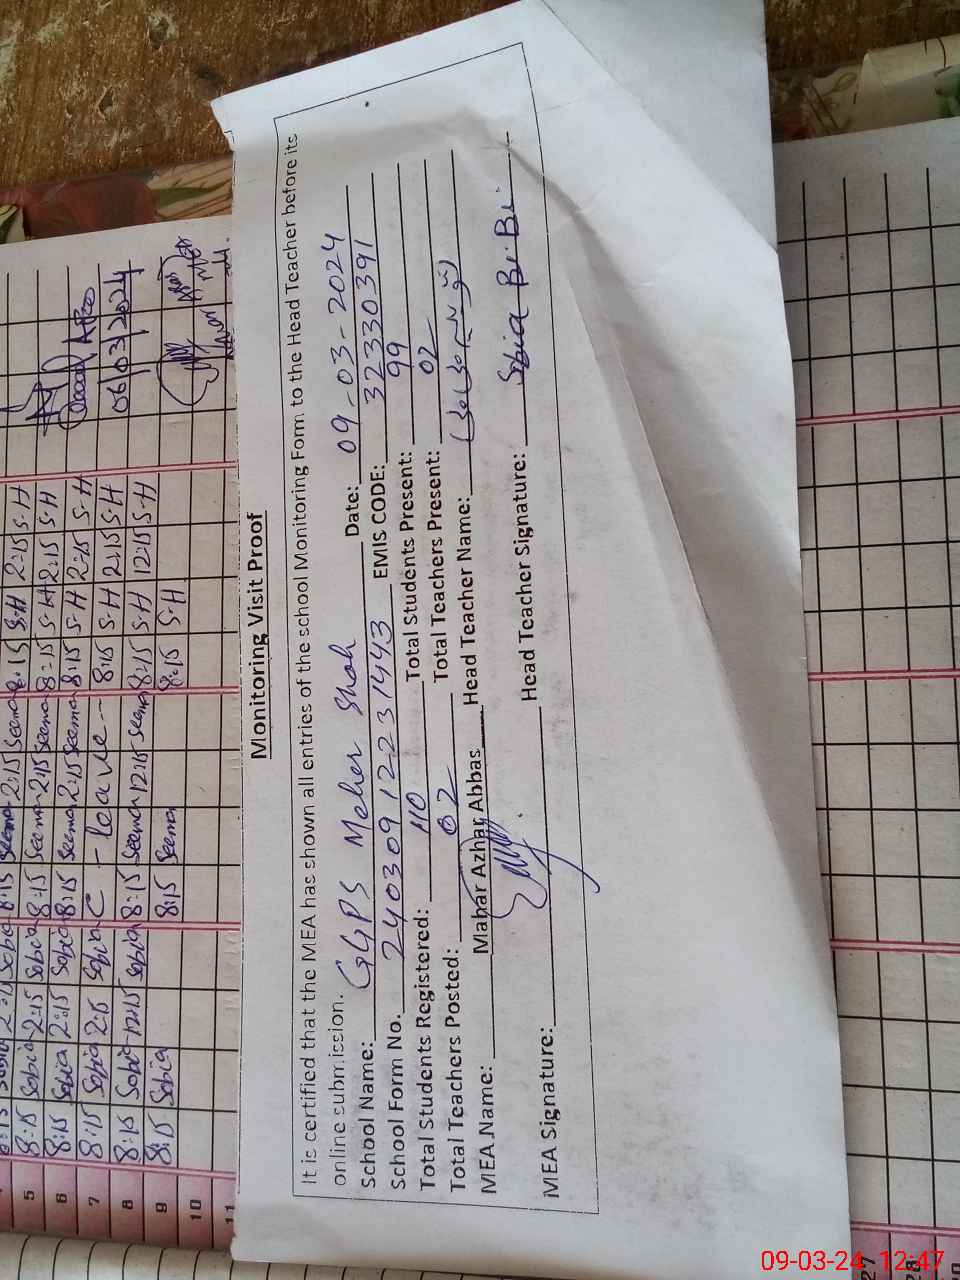 Monitoring Visit Proof
It is certified that the MEA has shown all entries of the school Monitoring Form to the Head Teacher before its
online submission.
School Name: GGPS Meher Shah Date: 09-03-2024
School Form No. 24030912231443 EMIS CODE: 32330391
Total Students Registered: 110 Total Students Present: 99
Total Teachers Posted: 02 Total Teachers Present: 02
MEA Name: Mahar Azhar Abbas Head Teacher Name:
MEA Signature: Head Teacher Signature: Sobia Bi Bi
5 8:15 Sobia 2:15 Sobia 8:15 Seema 2:15 Seema 8:15 S-H 2:15 S-H
6 8:15 Sobia 2:15 Sobia 8:15 Seema 2:15 Seema 8:15 S-H 2:15 S-H
7 8:15 Sobia 2:15 Sobia C - leave - 8:15 S-H 2:15 S-H
8 8:15 Sobia 12:15 Sobia 8:15 Seema 12:15 Seema 8:15 S-H 12:15 S-H
9 8:15 Sobia 8:15 Seema 8:15 S-H
06/03/2024
10
11
27
09-03-24 12:47